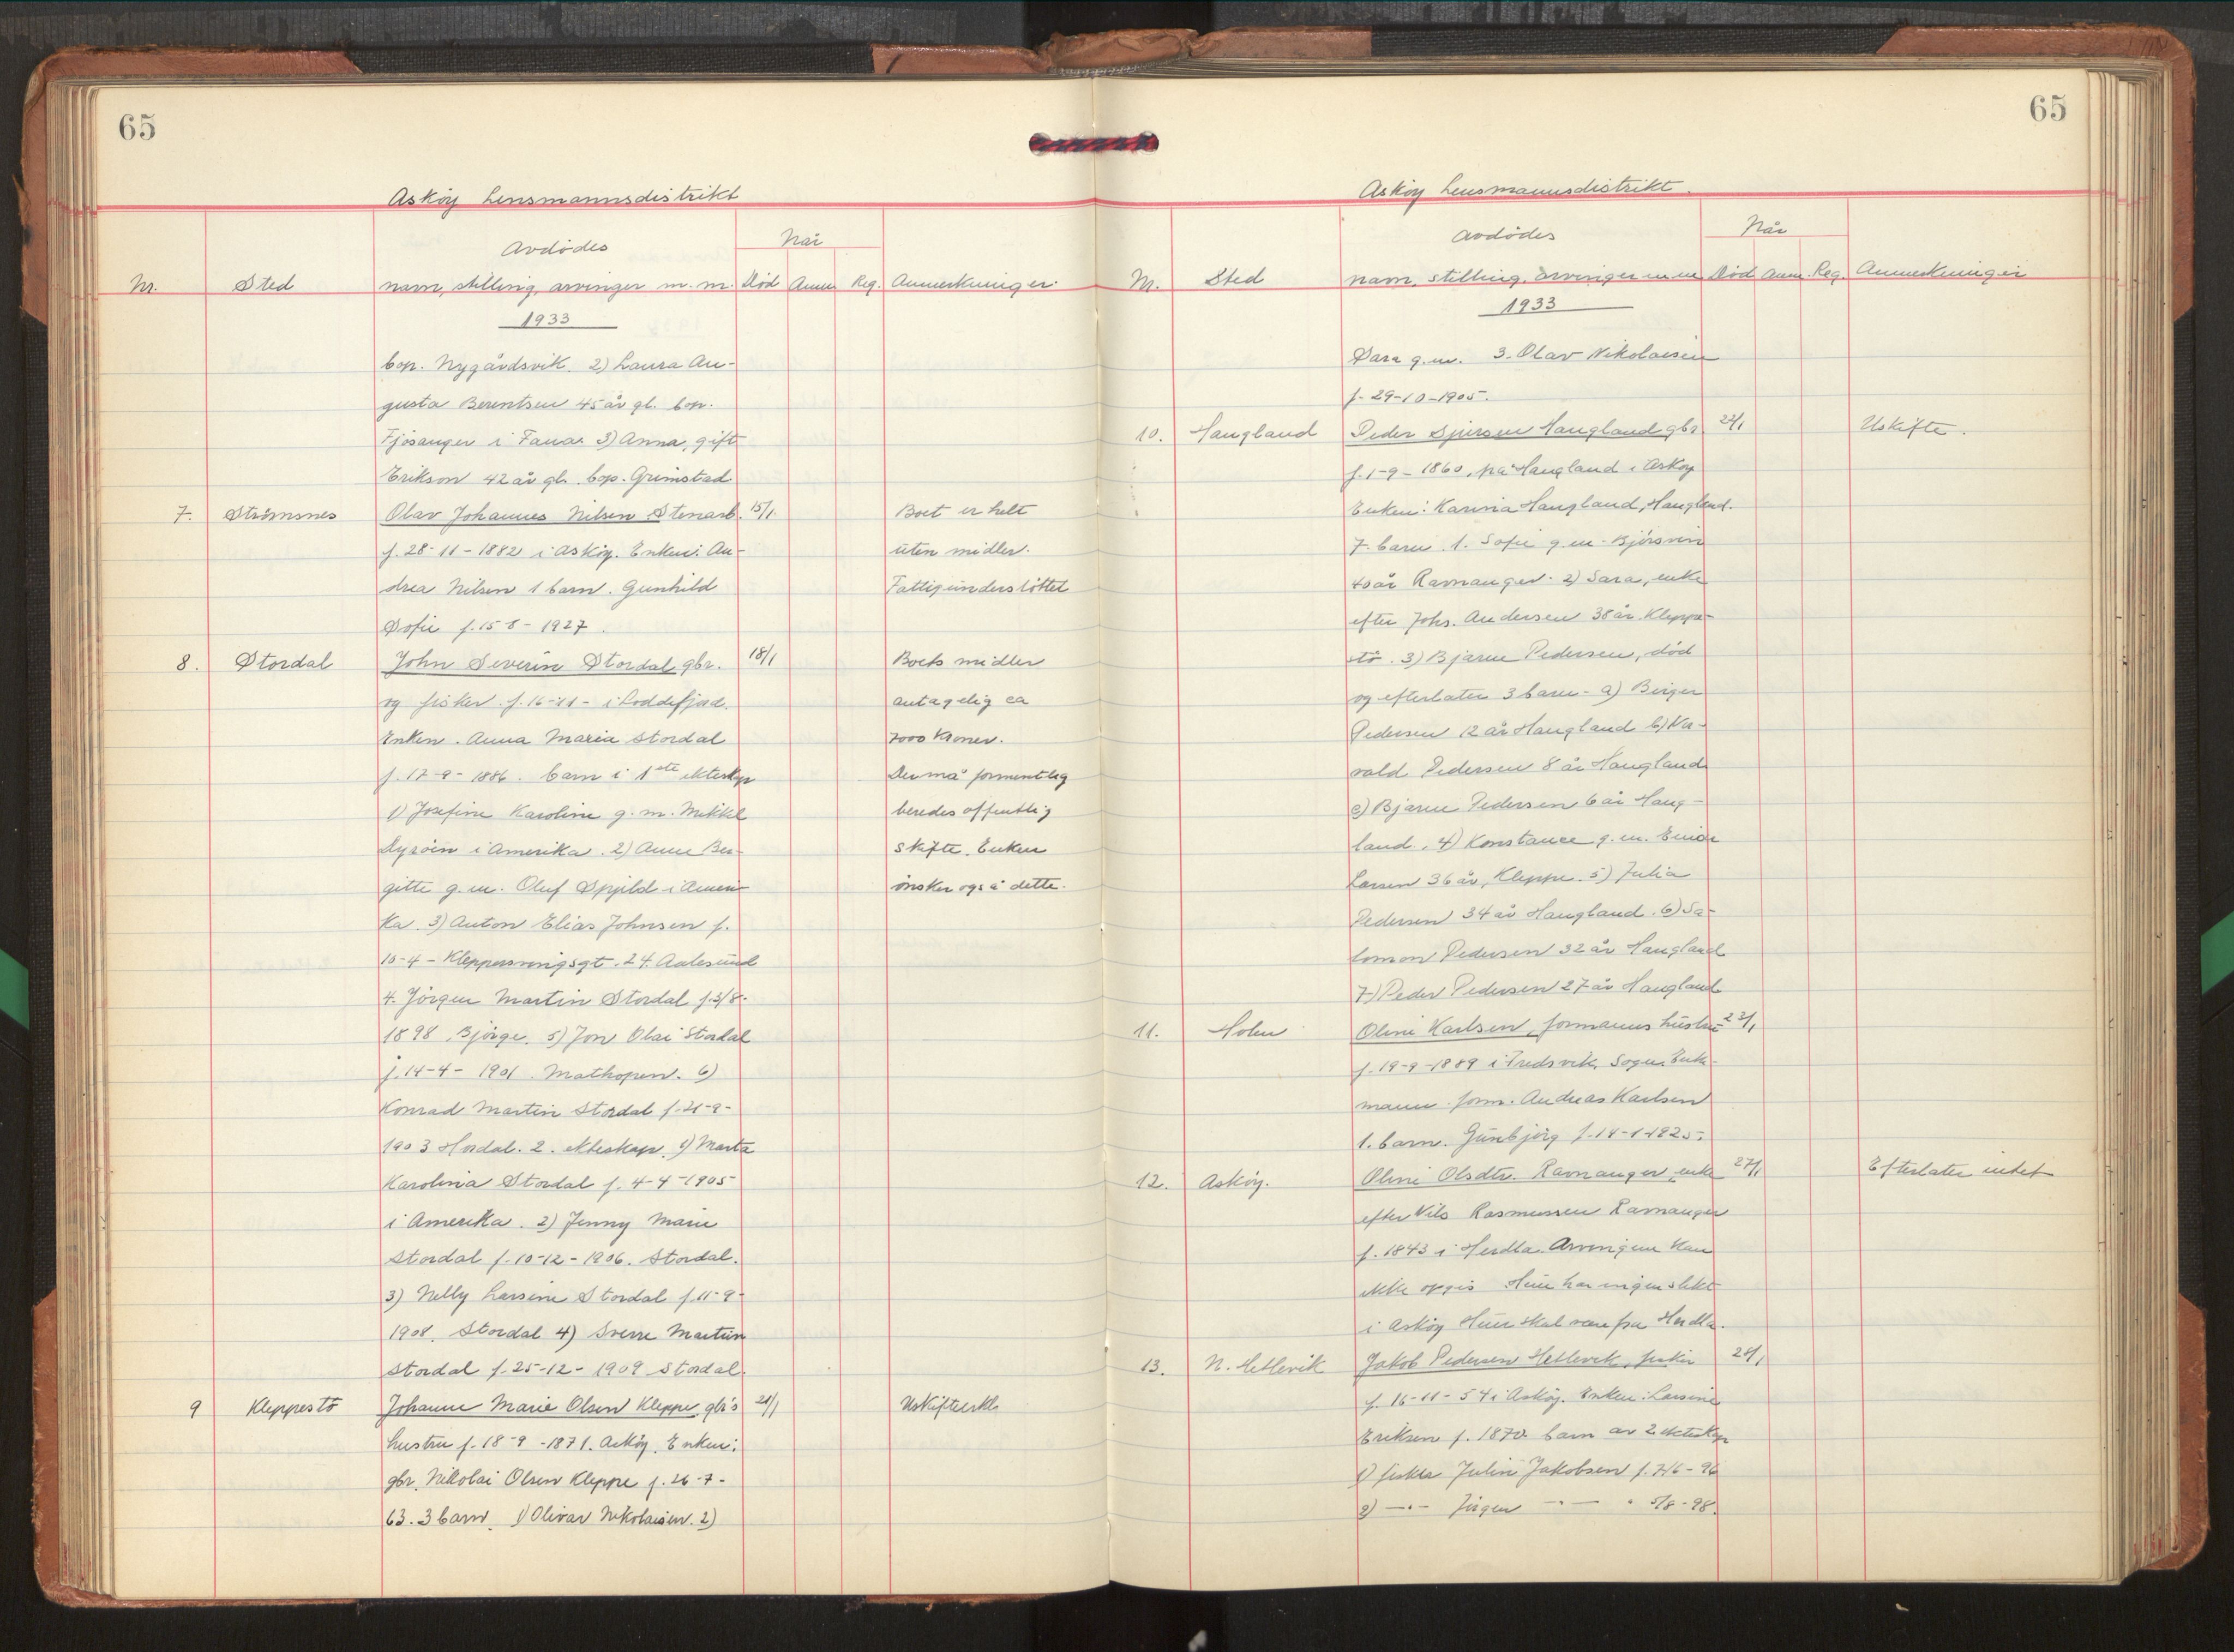 65
Askøy Lensmannsdistrikt
Avdødes
Når
Nr. Sted navn, stilling, arvinger m. m. Død Anm. Reg. Anmerkninger.
1933
bop. Nygårdsvik. 2) Laura Au-
gusta Berentsen 45 år gl. bop.
Fjøsanger i Fana. 3) Anna, gift
Erikson 42 år gl. bop. Grimstad
7. Strømsnes Olav Johannes Nilsen Stenarb. 15/1. Boet er helt
f. 28-11-1882 i Askøy. Enken: An- uten midler.
drea Nilsen 1 barn. Gunhild Fattigunderstøttet
Sofie f. 15-8-1927.
8. Stordal John Severin Stordal gbr. 18/1 Boets midler
og fisker. f. 16-11- i Loddefjord. antagelig ca
Enken. Anna Maria Stordal 7000 kroner.
f. 17-9-1886. barn i 1ste ekteskap Der må formentlig
1) Josefine Karoline g. m. Mikkel beredes offentlig
i Amerika. 2) Anne Ber- skifte. Enken
gitte g. m. Oluf Spjeld i Ameri- ønsker også dette.
ka. 3) Anton Elias Johnsen f.
10-4- 24. Aalesund
4. Jørgen Martin Stordal f. 3/8-
1898. Bjørge. 5) Jon Olai Stordal
f. 14-4-1901. Mathopen. 6)
Konrad Martin Stordal f. 21-9-
1903 Stordal. 2. ekteskap. 1) Marta
Karolina Stordal f. 4-4-1905
i Amerika. 2) Jenny Marie
Stordal f. 10-12-1906. Stordal.
3) Nelly Larsine Stordal f. 11-9-
1908. Stordal 4) Sverre Martin
Stordal f. 25-12-1909 Stordal.
9 Kleppestø Johanne Marie Olsen Kleppe gbr's 21/1 Uskifteerkl.
hustru f. 18-9-1871. Askøy. Enken:
gbr. Nikolai Olsen Kleppe f. 26-7-
63. 3 barn. 1) Olivar Nikolaisen. 2)
65
Askøy Lensmannsdistrikt.
Avdødes
Når
Nr. Sted navn, stilling, arvinger m. m. Død Anm. Reg. Anmerkninger
1933
Sara g. m. 3. Olav Nikolaisen
f. 29-10-1905.
10. Haugland Peder Haugland gbr. 22/1 Uskifte.
f. 1-9-1860, på Haugland i Askøy
Enken: Karina Haugland, Haugland.
7 barn. 1. Sofie g. m. Bjørsvin
40 år Ravnanger. 2) Sara, enke
efter Johs. Andersen 38 år. Kleppe-
stø. 3) Bjarne Pedersen, død
og efterlater 3 barn - a) Birger
Pedersen 12 år Haugland b)
vald Pedersen 8 år Haugland
c) Bjarne Pedersen 6 år Haug-
land. 4) Konstance g. m. Einar
Larsen 36 år, Kleppe. 5) Julia
Pedersen 34 år Haugland. 6) Sa-
lomon Pedersen 32 år Haugland
7) Peder Pedersen 27 år Haugland
11. Holm Oline Karlsen, formanns hustru 23/1
f. 19-9-1889 i Sogn. Enke-
mann form. Andreas Karlsen
1. barn. Gunbjørg f. 14-1-1925.
12. Askøy. Oline Olsdtr. Ravnanger enke 27/1 Efterlater intet
efter Nils Rasmussen Ravnanger
f. 1843 i Herdla. Arvingene kan
ikke opgis Hun har ingen slekt
i Askøy Hun skal være fra Herdla.
13. N. Hetlevik Jakob Pedersen Hetlevik, fisker 28/1
f. 16-11-54 i Askøy. Enken: Larsine
Eriksen f. 1870. barn av 2 ekteskap
1) fisker Julin Jakobsen f. 7/6-96
2) —"— Jørgen —"— " 5/8-98.